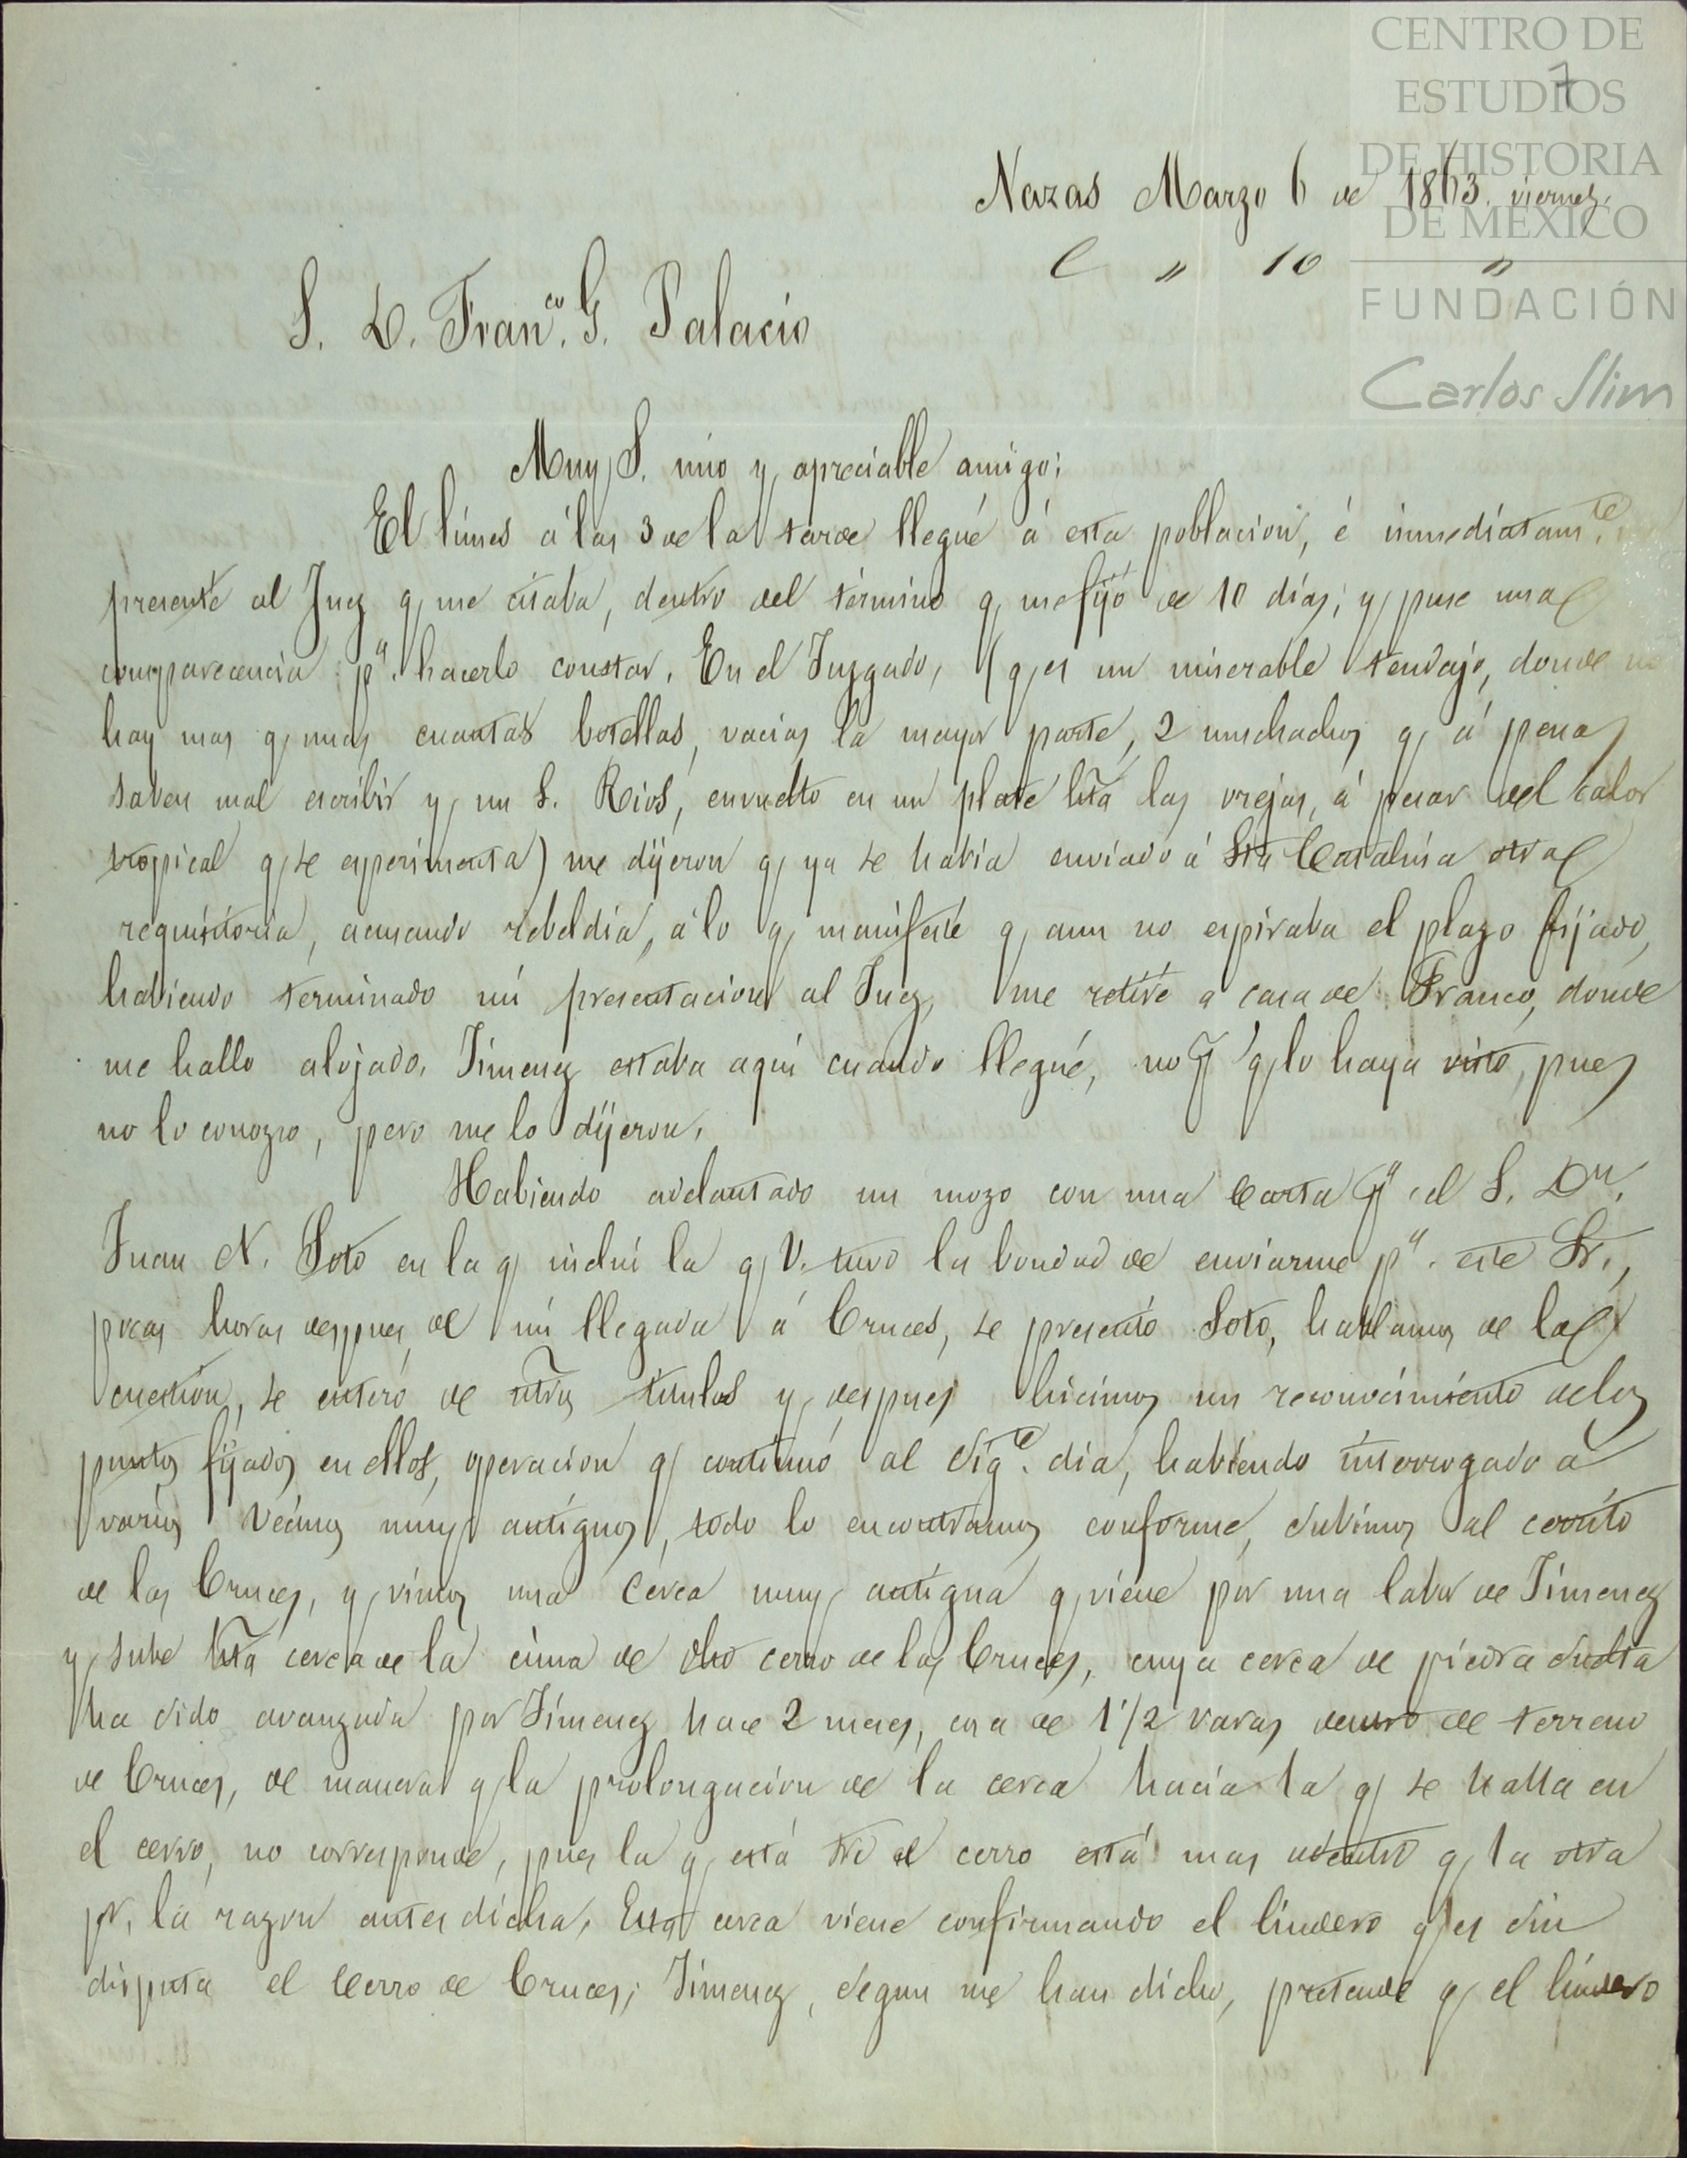 CENTRO DE
ESTUDIOS
DE HISTORIA
DE MÉXICO
FUNDACIÓN
Carlos Slim
7
Nazas Marzo 6 de 1863. viernes.
C " 10 "
S. D. Franco. G. Palacio
Muy S. mio y apreciable amigo;
El lúnes á las 3 de la tarde llegué á esta poblacion, é inmediatamte.
presenté al Juez q. me citaba, dentro del término q. me fijó de 10 días; y puse una
comparecencia pa. hacerlo constar. En el Juzgado, (q. es un miserable tendajo, donde no
hay mas q. unas cuantas botellas, vacias la mayor parte, 2 muchachos q. á penas
saben mal escribir y un S. Rios, envuelto en un plaié hta las orejas, á pesar del calor
tropical q. se esperimenta) me dijeron q. ya se habia enviado á Sta Catalina otra
requisitoria, acusando rebeldia, á lo q. manifesté q. aun no espiraba el plazo fijado,
habiendo terminado mi presentacion al Juez, me retiré a casa de Franco, donde
me hallo alojado. Jimenez estaba aqui cuando llegué, no q. lo haya visto, pues
no lo conozco, pero me lo dijeron.
Habiendo adelantado un mozo con una Carta pa el S. Dn.
Juan N. Soto en la q. incluí la q. V. tuvo la bondad de enviarme pa. este Sr.,
pocas horas despues de mi llegada á Cruces, se presentó Soto, hablamos de la
cuestion, se enteró de ntros titulos y despues hicimos un reconocimiento de los
puntos fijados en ellos, operacion q. continuó al sigte. dia, habiendo interrogado á
varios vecinos muy antiguos, todo lo encontramos conforme, subimos al cerrito
de las Cruces, y vimos una cerca muy antigua q. viene por una labor de Jimenez
y sube hta cerca de la cima de dho cerro de las Cruces, cuya cerca de piedra suelta
ha sido avanzada por Jimenez hace 2 meses, cosa de 1 1/2 varas dentro de terreno
de Cruces, de manera q. la prolongacion de la cerca hacia la q. se halla en
el cerro, no corresponde, pues la q. está sre el cerro está mas adentro q. la otra
pr. la razon antes dicha. Esta cerca viene confirmando el lindero q. es sin
disputa el Cerro de Cruces; Jimenez, segun me han dicho, pretende q. el lindero